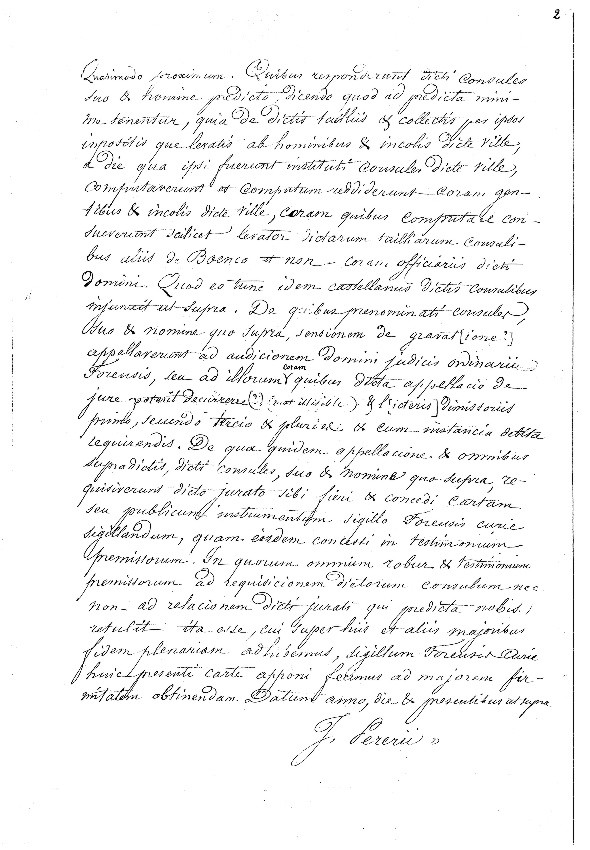 2
Quasimodo proximum. Quibus responderunt dicti consules
suo & homine predicto, dicendo quod ad predicta mini-
me tenentur, quia de dictis tailliis & collectis per ipsos
inpositis que levatis ab hominibus & incolis dicte ville,
a die qua ipsi fuerunt instituti consules dicte ville,
computaverunt et computum reddiderunt coram gen-
tibus & incolis dicte ville, coram quibus computare con-
sueverunt scilicet levator dictarum tailliarum consuli-
bus aliis de Boenco et non coram officiariis dicti
Domini. Quod eo tunc idem castellanus dictis consulibus
injunxit ut supra. De quibus prenominati consules,
suo & nomine quo supra, sencionem de gravat[ione?]
appellaverunt ad audicionem domini judicis ordinarii
Forensis, seu ad illorum coram quibus dicta appellacio de
jure poterit decurrere(?) (not illisible) & l[icteris] dimissoriis
primo, secundo tercio & pluries & cum instancia debita
requirendis. De qua quidem appellacione & omnibus
supradictis, dicti consules, suo & nomine quo supra, re-
quisiverunt dicto jurato sibi fieri & concedi cartam
seu publicum instrumentum sigillo Forensis curie
sigillandum, quam eisdem concessi in testimonium
premissorum. In quorum omnium robur & testimonium
premissorum ad requisicionem dictorum consulum nec
non ad relacionem dicti jurati qui predicta nobis
retulit ita esse, cui super hiis et aliis majoribus
fidem plenariam adhibemus, sigillum Forensis Curie
huic presenti carte apponi fecimus ad majorem fir-
mitatem obtinendam. Datum anno, die & presentibus ut supra
J. Pererii